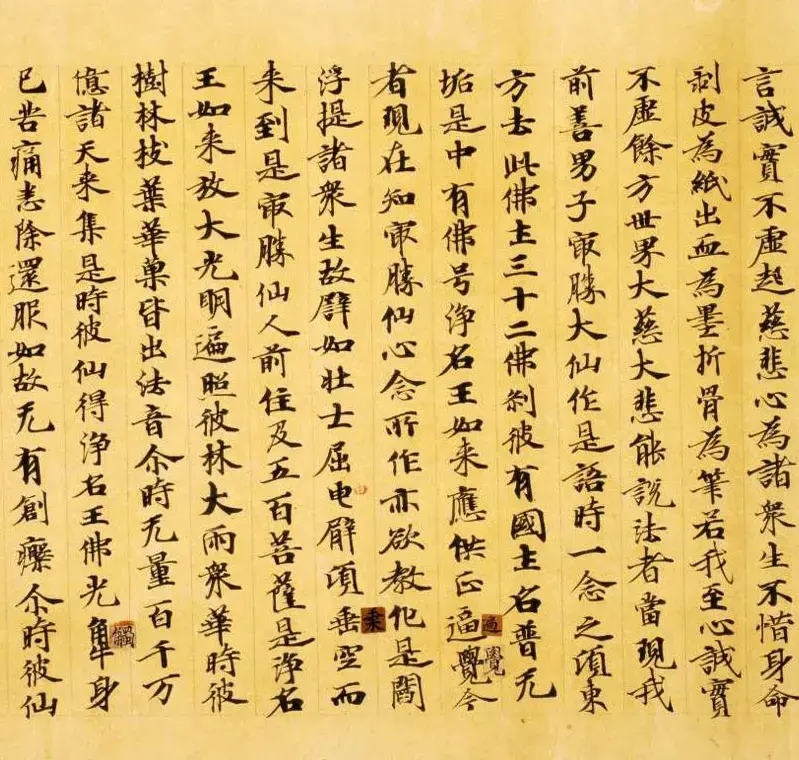 言誠實不虛起慈悲心為諸衆生不惜身命
剥皮為紙出血為墨折骨為筆若我至心誠實
不虛餘方世界大慈大悲能説法者當現我
前善男子㝡勝大仙作是語時一念之頃東
方去此佛土三十二佛刹彼有國土名普无
垢是中有佛号浄名王如来應供正逼覺今
覺
者現在知㝡勝仙心念所作亦欲教化是閻
浮提諸衆生故譬如壮士屈申臂頃垂空而
来到是㝡勝仙人前住及五百菩薩是浄名
王如来放大光明遍照彼林大雨衆華時彼
樹林枝葉華菓皆出法音尒時无量百千万
億諸天来集是時彼仙得浄名王佛光身
已苦痛悉除還服如故无有創癓尒時彼仙